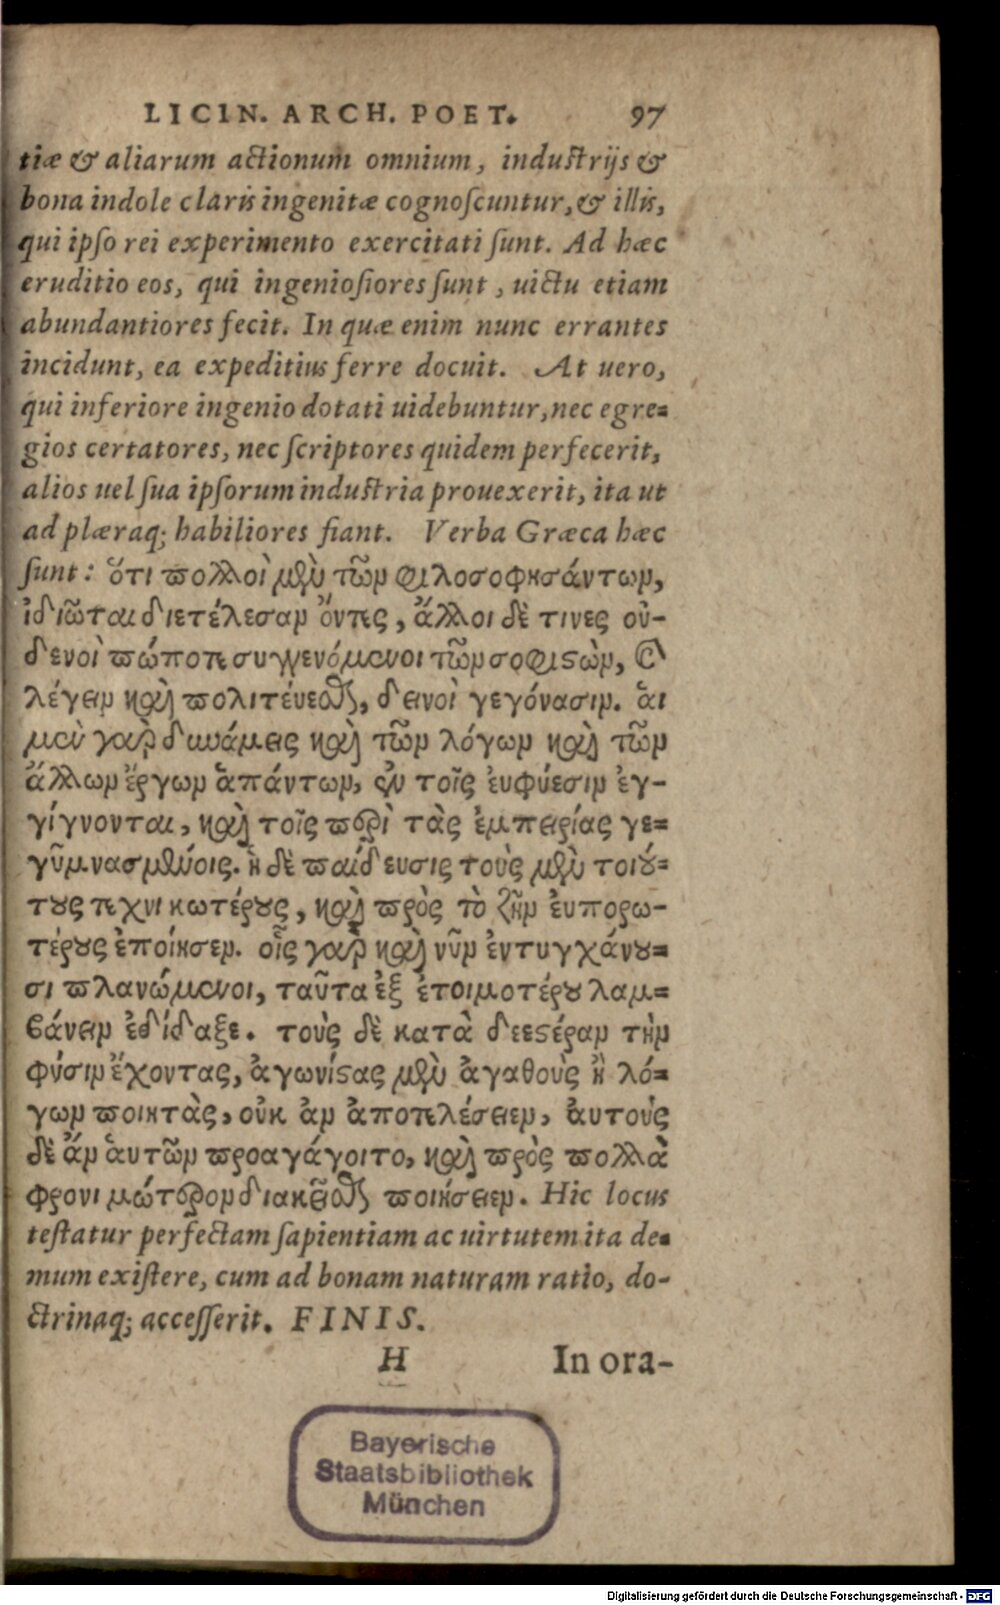 LICIN. ARCH. POET. 97
tiæ & aliarum actionum omnium, industrijs &
bona indole claris ingenitæ cognoscuntur, & illis,
qui ipso rei experimento exercitati sunt. Ad hæc
eruditio eos, qui ingeniosiores sunt, uictu etiam
abundantiores fecit. In quæ enim nunc errantes
incidunt, ea expeditius ferre docuit. At uero,
qui inferiore ingenio dotati uidebuntur, nec egre=
gios certatores, nec scriptores quidem perfecerit,
alios uel sua ipsorum industria prouexerit, ita ut
ad plæraq; habiliores fiant. Verba Græca hæc
sunt: ὅτι πολλοὶ μὲν τῶν φιλοσοφησάντων,
ἰδιῶται διετέλεσαν ὄντες, ἄλλοι δὲ τινες οὐ-
δενοὶ πώποτε συγγενόμενοι τῶν σοφιστῶν, καὶ
λέγειν καὶ πολιτεύεσθαι, δεινοὶ γεγόνασιν. ἁι
μὲν γὰρ δυνάμεις καὶ τῶν λόγων καὶ τῶν
ἄλλων ἔργων ἁπάντων, ἐν τοῖς ἐυφύεσιν ἐγ-
γίγνονται, καὶ τοῖς περὶ τὰς ἐμπειρίας γε=
γῦμνασμένοις. ἡ δὲ παίδευσις τοὺς μὲν τοιού=
τους τεχνικωτέρους, καὶ πρὸς τὸ ζῆν ἐυπορω-
τέρους ἐποίησεν. οἷς γὰρ καὶ νῦν ἐντυγχάνου=
σι πλανώμενοι, ταῦτα ἐξ ἑτοιμοτέρου λαμ=
βάνειν ἐδίδαξε. τοὺς δὲ κατὰ δεεστέραν τὴν
φύσιν ἔχοντας, ἀγωνίστας μὲν ἀγαθοὺς ἢ λό=
γων ποιητὰς, οὐκ ἀν ἀποτελέσειεν, ἀυτοὺς
δὲ ἄν ἁυτῶν προαγάγοιτο, καὶ πρὸς πολλὰ
φρονιμώτερον διακεῖσθαι ποιήσειεν. Hic locus
testatur perfectam sapientiam ac uirtutem ita de=
mum existere, cum ad bonam naturam ratio, do-
ctrinaq; accesserit. FINIS.
H In ora-
Bayerische
Staatsbibliothek
München
Digitalisierung gefördert durch die Deutsche Forschungsgemeinschaft - DFG